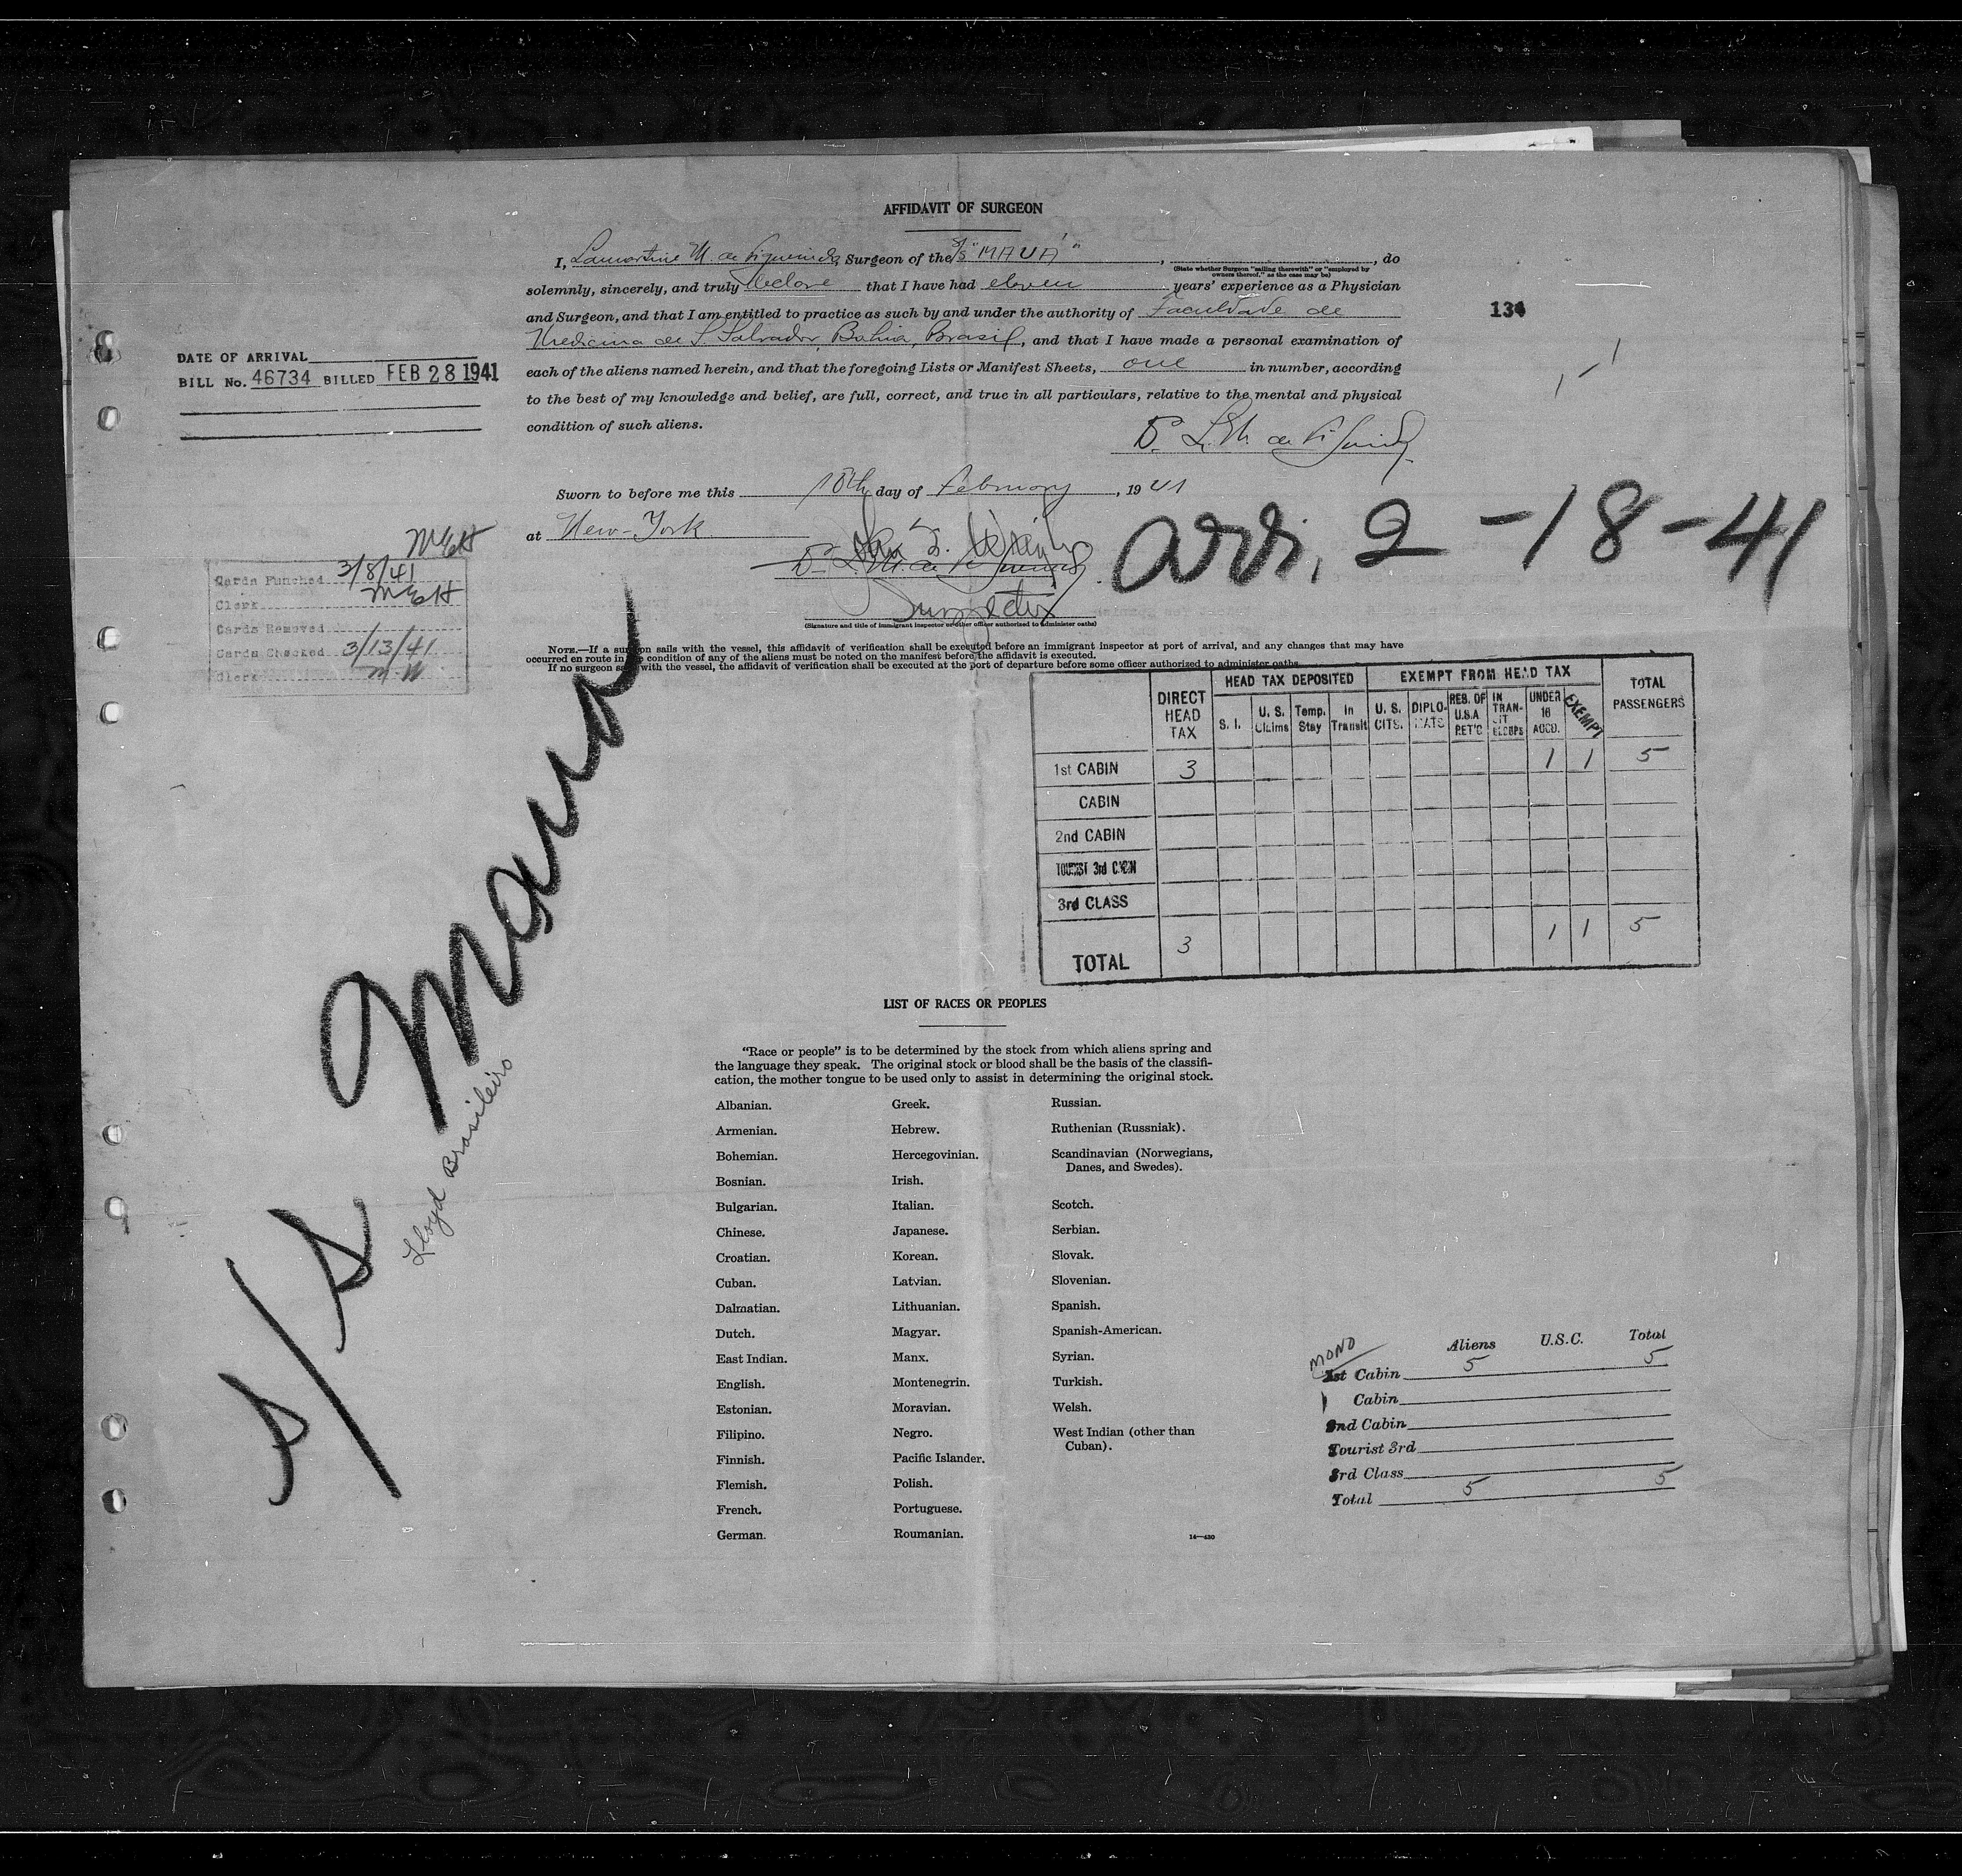 AFFIDAVIT OF SURGEON
I, Lamartine M. de Figueiredo, Surgeon of the S/S "MAUÁ", , do
(State whether Surgeon "sailing therewith" or "employed by owners thereof," as the case may be)
solemnly, sincerely, and truly declare that I have had eleven years' experience as a Physician
and Surgeon, and that I am entitled to practice as such by and under the authority of Faculdade de
Medicina de S. Salvador, Bahia, Brasil, and that I have made a personal examination of
each of the aliens named herein, and that the foregoing Lists or Manifest Sheets, one in number, according
to the best of my knowledge and belief, are full, correct, and true in all particulars, relative to the mental and physical
condition of such aliens.
134
DATE OF ARRIVAL
BILL No. 46734 BILLED FEB 28 1941
Sworn to before me this 18th day of February, 1941
at New-York
Inspector
(Signature and title of immigrant inspector or other officer authorized to administer oaths)
Arr. 2-18-41
MEH
Cards Punched 3/8/41
Clerk MEH
Cards Removed
Cards Checked 3/13/41
Clerk M W
NOTE.—If a surgeon sails with the vessel, this affidavit of verification shall be executed before an immigrant inspector at port of arrival, and any changes that may have
occurred en route in the condition of any of the aliens must be noted on the manifest before the affidavit is executed.
If no surgeon sails with the vessel, the affidavit of verification shall be executed at the port of departure before some officer authorized to administer oaths.
DIRECT HEAD TAX HEAD TAX DEPOSITED EXEMPT FROM HEAD TAX TOTAL PASSENGERS
S. I. U. S. Claims Temp. Stay In Transit U. S. CITS. DIPLOMATS RES. OF U.S.A RET'G IN TRANSIT UNDER 16 ACCD. EXEMPT
1st CABIN 3 1 1 5
CABIN
2nd CABIN
TOURIST 3rd CABIN
3rd CLASS
TOTAL 3 1 1 5
S/S Maua
Lloyd Brasileiro
LIST OF RACES OR PEOPLES
"Race or people" is to be determined by the stock from which aliens spring and
the language they speak. The original stock or blood shall be the basis of the classifi-
cation, the mother tongue to be used only to assist in determining the original stock.
Albanian. Greek. Russian.
Armenian. Hebrew. Ruthenian (Russniak).
Bohemian. Hercegovinian. Scandinavian (Norwegians,
Danes, and Swedes).
Bosnian. Irish.
Bulgarian. Italian. Scotch.
Chinese. Japanese. Serbian.
Croatian. Korean. Slovak.
Cuban. Latvian. Slovenian.
Dalmatian. Lithuanian. Spanish.
Dutch. Magyar. Spanish-American.
East Indian. Manx. Syrian.
English. Montenegrin. Turkish.
Estonian. Moravian. Welsh.
Filipino. Negro. West Indian (other than
Cuban).
Finnish. Pacific Islander.
Flemish. Polish.
French. Portuguese.
German. Roumanian.
14—430
MONO Aliens U.S.C. Total
1st Cabin 5 5
Cabin
2nd Cabin
Tourist 3rd
3rd Class
Total 5 5